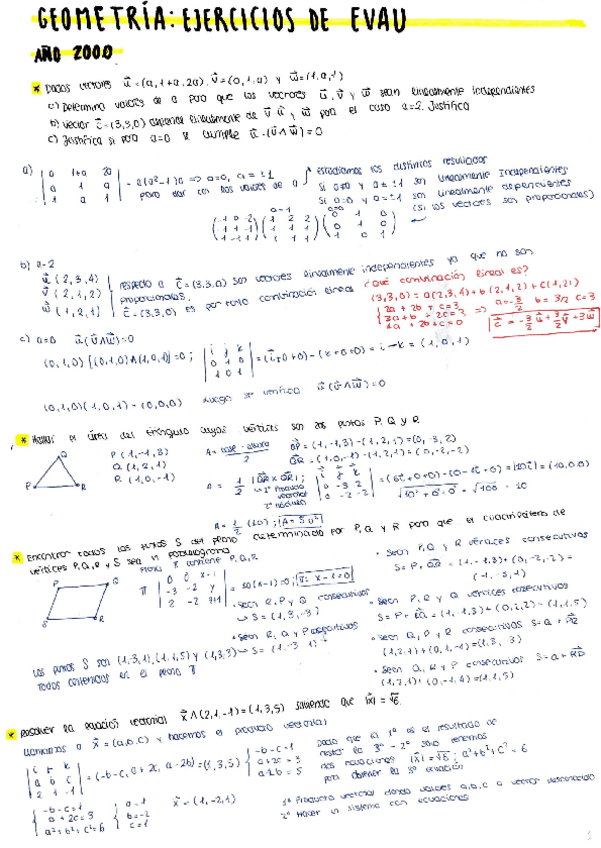 GEOMETRÍA: EJERCICIOS DE EVAU
AÑO 2000
* Dados vectores u = (a, 1+a, 2a), v = (0, 1, a) y w = (1, a, 1)
a) Determina valores de a para que los vectores u, v y w sean linealmente independientes
b) Vector c = (3,3,0) depende linealmente de v u y w para el caso a=2. Justifica
c) Justifica si para a=0 se cumple u·(v∧w)=0
a)
estudiamos los distintos resultados
Si a≠0 y a≠±1 son linealmente independientes
Si a=0 y a=±1 son linealmente dependientes
(si los vectores son proporcionales)
b) a=2
u (2,3,4)
v (2,1,2)
w (1,2,1)
respecto a c=(3,3,0) son vectores linealmente independientes ya que no son
proporcionales.
c=(3,3,0) es por tanto combinación lineal
¿Qué combinación lineal es?
(3,3,0) = a(2,3,4) + b(2,1,2) + c(1,2,1)
2a + 2b + c = 3
3a + b + 2c = 3
4a + 2b + c = 0
a = -3/2 b = 3/2 c = 3
c = -3/2 u + 3/2 v + 3w
c) a=0 u(v∧w)=0
(0,1,0)[(0,1,0)∧(1,0,1)]=0;
= i - k = (1,0,1)
(0,1,0)(1,0,1) = (0,0,0) luego se verifica u(v∧w)=0
* Hallar el área del triángulo cuyos vértices son los puntos P, Q y R
P (1,-1,3)
Q (1,2,1)
R (1,0,-1)
A = base · altura / 2
QP = (1,-1,3) - (1,2,1) = (0,-3,2)
QR = (1,0,-1) - (1,2,1) = (0,-2,-2)
A = 1/2 |QP × QR|;
1º Producto vectorial
2º Módulo
= (6i+0+0) - (0-4i+0) = |10i| = (10,0,0)
√10²+0²+0² = √100 = 10
A = 1/2 (10); A = 5 u²
* Encontrar todos los puntos S del plano determinado por P, Q y R para que el cuadrilátero de
vértices P, Q, R y S sea un paralelogramo
Plano π contiene P, Q, R
= 10(x-1) = 0; π: x-1=0
• Sean R, P y Q consecutivos
S = (1,3,-3)
• Sean R, Q y P consecutivos
S = (1,-3,1)
• Sean P, Q y R vértices consecutivos
S = P + QR = (1,-1,3) + (0,-2,-2) =
(1,-3,1)
• Sean P, R y Q vértices consecutivos
S = P + RQ = (1,-1,3) + (0,2,2) = (1,1,5)
• Sean Q, P y R consecutivos S = Q + PR
(1,2,1) + (0,1,-4) = (1,3,-3)
• Sean Q, R y P consecutivos S = Q + RP
(1,2,1) + (0,-1,4) = (1,1,5)
Los puntos S son (1,-3,1), (1,1,5) y (1,3,-3)
Todos contenidos en el plano π
* Resolver la ecuación vectorial x∧(2,1,-1) = (1,3,5) sabiendo que |x| = √6.
Llamamos a x = (a,b,c) y hacemos el producto vectorial
i j k
a b c
2 1 -1
= (-b-c, a+2c, a-2b) = (1,3,5)
-b-c=1
a+2c=3
a-2b=5
Dado que la 1ª es el resultado de
restar la 3ª - 2ª solo tenemos
dos ecuaciones |x|=√6; a²+b²+c²=6
para obtener la 3ª ecuación
-b-c=1
a+2c=3
a²+b²+c²=6
a=1
b=-2
c=1
x = (1,-2,1)
1º Producto vectorial dando valores a,b,c a vector desconocido
2º Hacer un sistema con ecuaciones